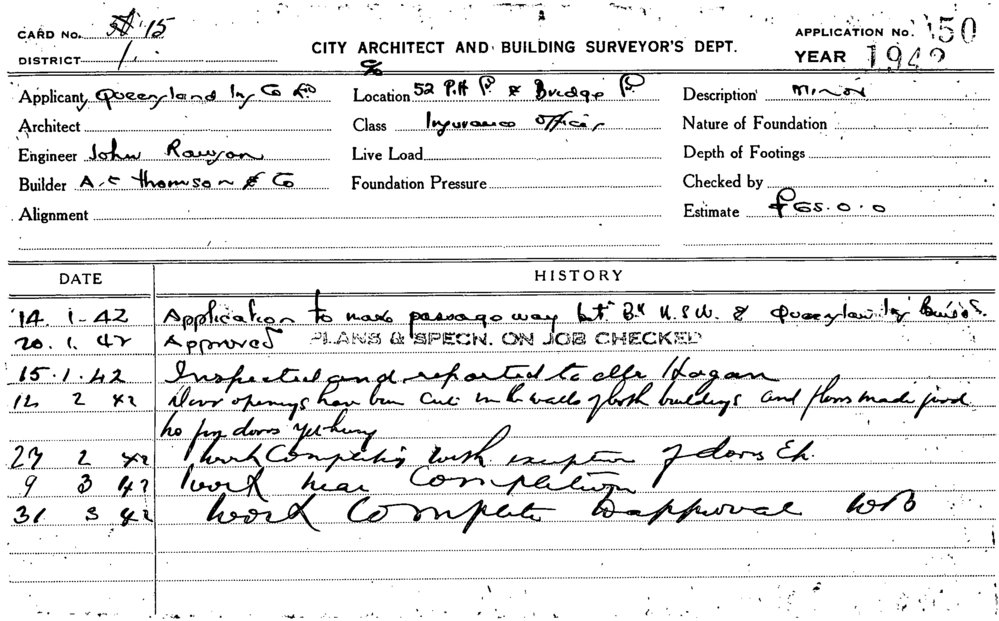 CARD No. 15 APPLICATION No. 150
DISTRICT 1. CITY ARCHITECT AND BUILDING SURVEYOR'S DEPT. YEAR 1942
c/o
Applicant Queensland Ins Co Ld Location 52 Pitt St & Bridge St. Description Minor
Architect Class Insurance Offices Nature of Foundation
Engineer John Rawson Live Load Depth of Footings
Builder A.C Thomson & Co Foundation Pressure Checked by
Alignment Estimate £65.0.0
DATE HISTORY
14.1-42 Application to make passage way bt Bk N.S.W. & Queensland Ins Build's.
20.1.42 Approved PLANS & SPECN. ON JOB CHECKED
15.1.42 Inspected and reported to Mr Hagan
12 2 42 Door openings have been cut in the walls of both buildings and floors made good
no doors yet hung
27 2 42 Work Completed with exception of doors
9 3 42 Work near Completion
31 3 42 Work Complete to approval